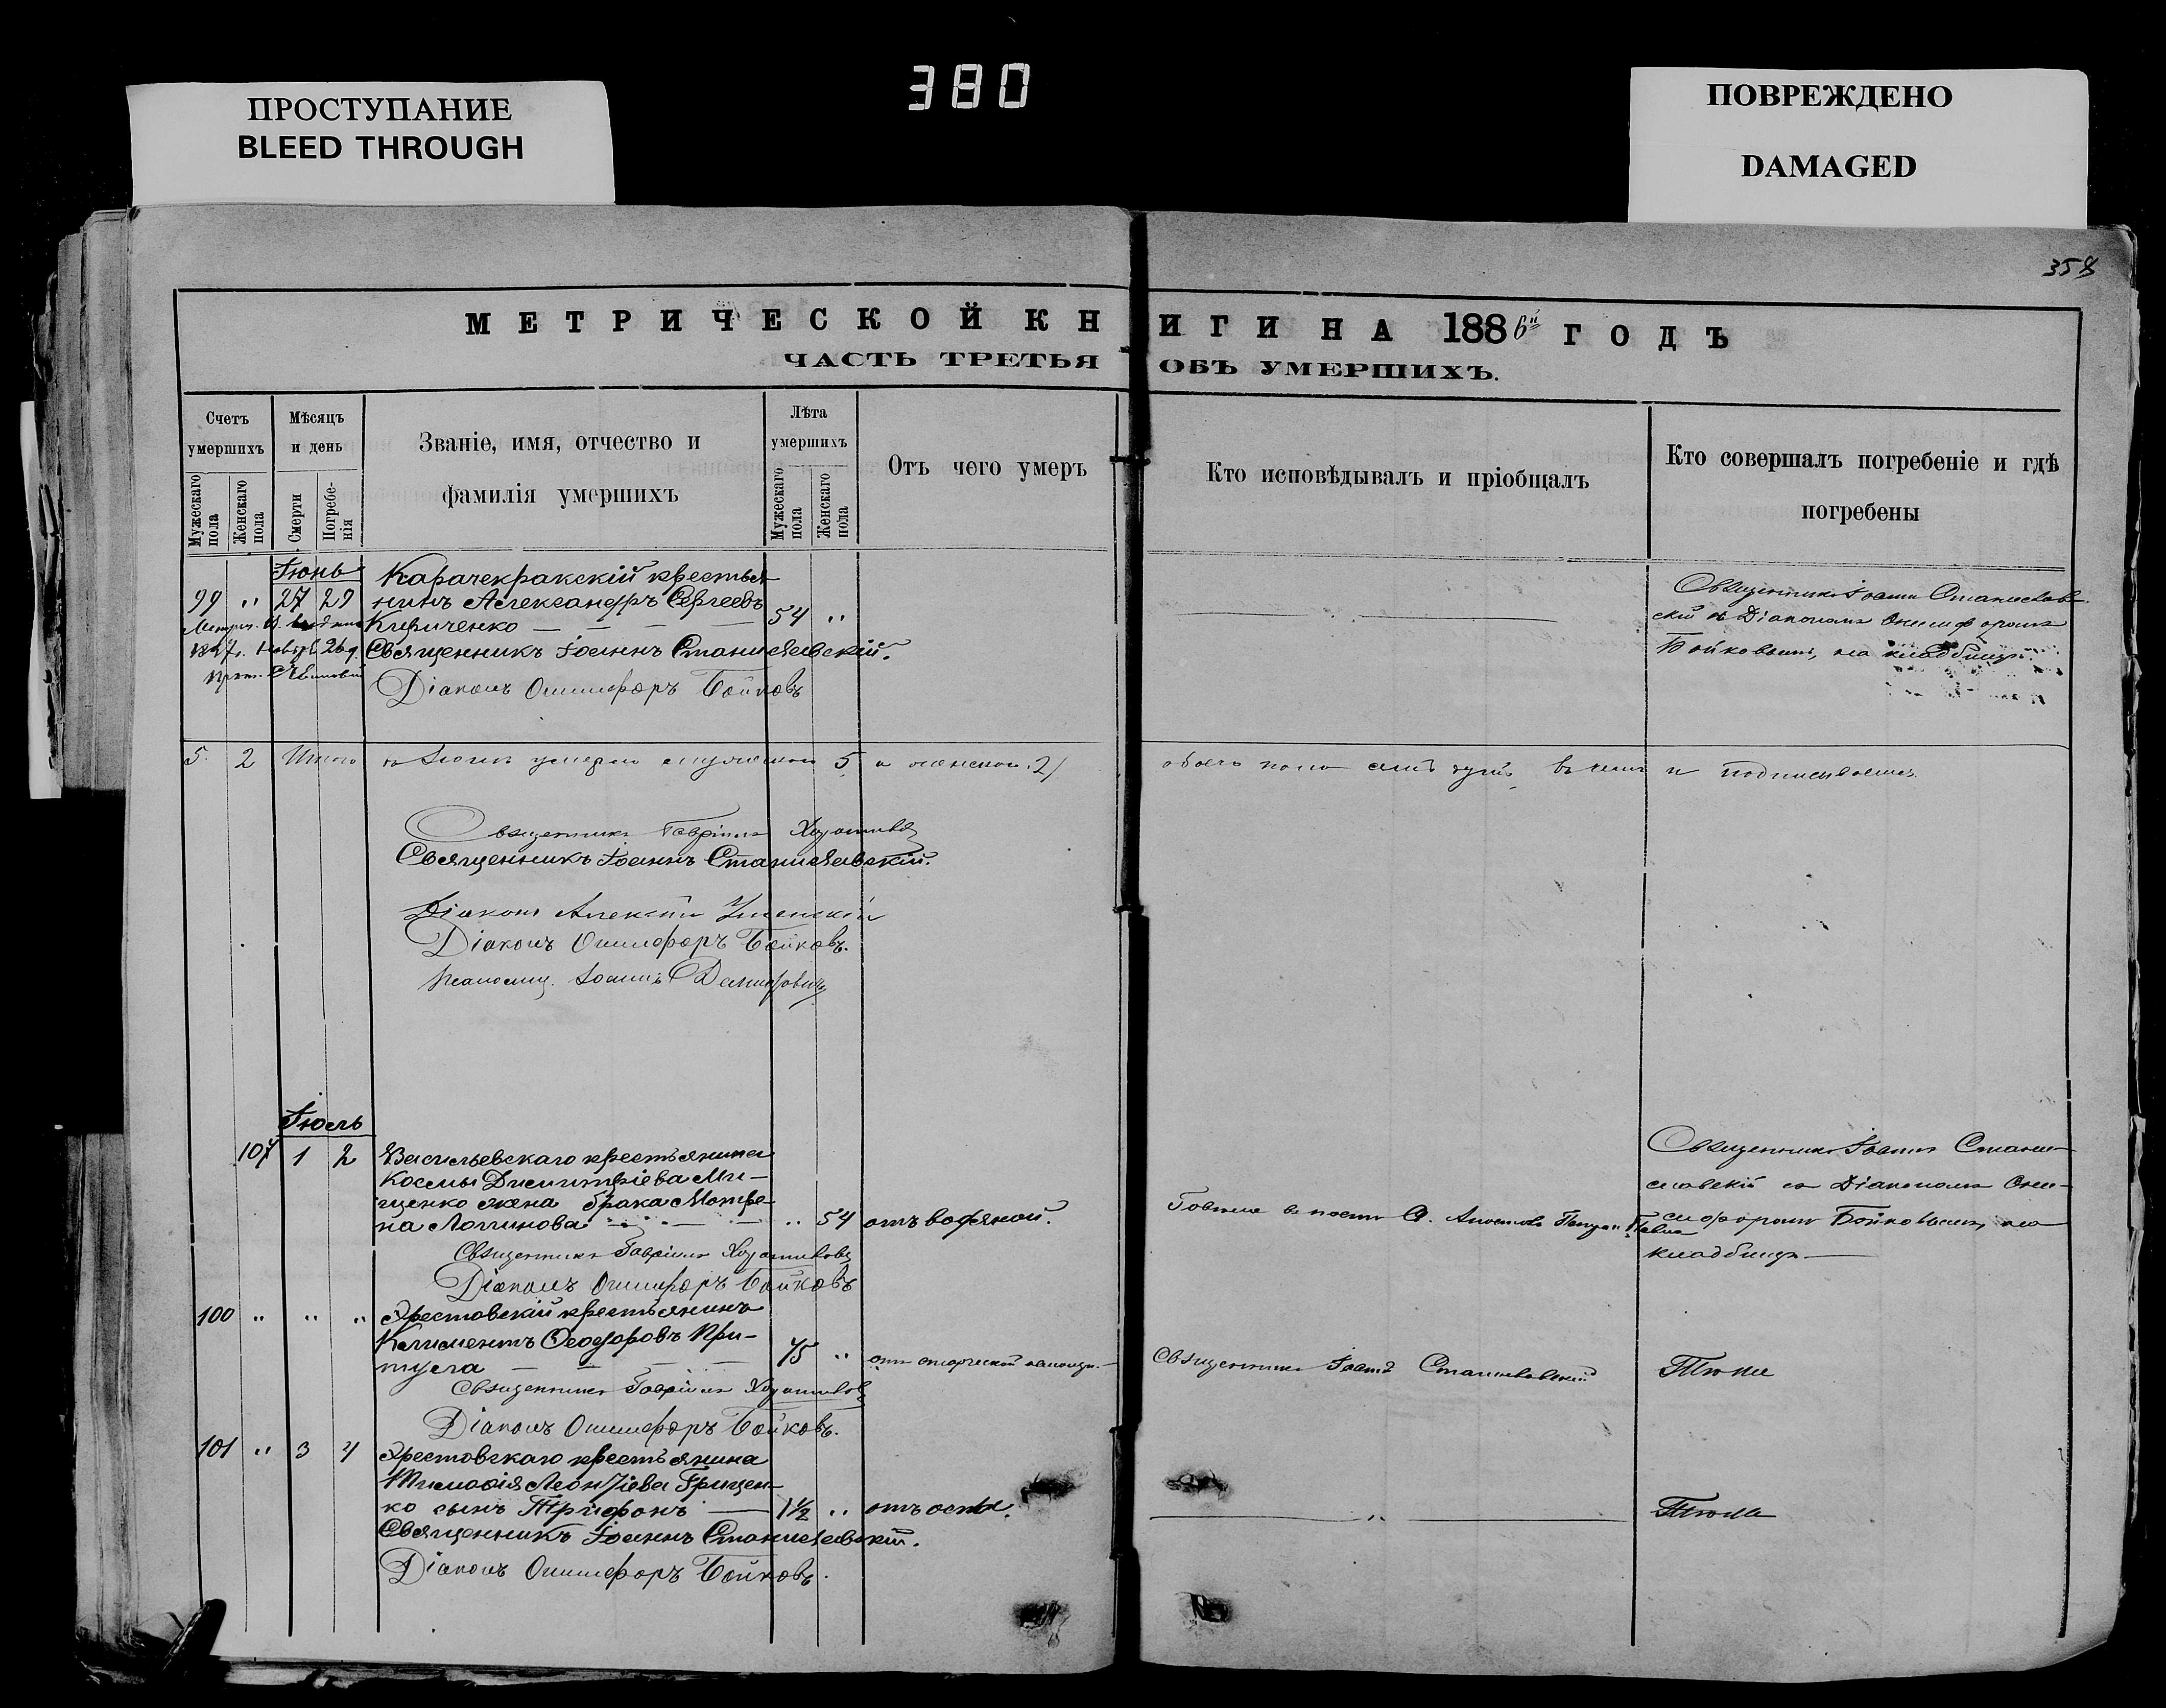 380
ПРОСТУПАНИЕ
BLEED THROUGH
ПОВРЕЖДЕНО
DAMAGED
358
МЕТРИЧЕСКОЙ КНИГИ НА 1886й ГОДЪ
ЧАСТЬ ТРЕТЬЯ ОБЪ УМЕРШИХЪ.
Счетъ умершихъ
Мужескаго пола
Женскаго пола
Мѣсяцъ и день
Смерти
Погребе-
нія
Званіе, имя, отчество и
фамилія умершихъ
Лѣта умершихъ
Мужескаго пола
Женскаго пола
Отъ чего умеръ
Кто исповѣдывалъ и пріобщалъ
Кто совершалъ погребеніе и гдѣ
погребены
Іюнь
Карачекракскій крестья
99 " 27 29 нинъ Александръ Сергеевъ
Кириченко — — — — 54 "
Священникъ Іоаннъ Станиславскій.
Діаконъ Онисифоръ Бойковъ
Священникъ Іоаннъ Станислав-
скій съ Діакономъ Онисифоромъ
Бойковымъ, на кладбищѣ.
5. 2 Итого въ Іюнѣ умерло мужескаго 5 и женскаго 2/ обоего пола семь душъ, въ чемъ и подписуемся.
Священникъ Гавріилъ
Священникъ Іоаннъ Станиславскій.
Діаконъ Алексій
Діаконъ Онисифоръ Бойковъ.
Псаломщ. Іоаннъ
Іюль
107 1 2 Васильевскаго крестьянина
Космы Димитріева Ми-
щенко жена брака Матре-
на Логинова — — " 54 отъ водяной.
Священникъ Гавріилъ
Діаконъ Онисифоръ Бойковъ
Говѣла въ постъ Св. Апостоловъ Петра и Павла
Священникъ Іоаннъ Стани-
славскій съ Діакономъ Они-
сифоромъ Бойковымъ, на
кладбищѣ —
100 " " " Эрестовскій крестьянинъ
Климентъ Ѳеодоровъ При-
тула — — — — 75 " отъ старческой немощи. — Священникъ Іоаннъ Станиславскій Тѣже
Священникъ Гавріилъ
Діаконъ Онисифоръ Бойковъ.
101 " 3 4 Эрестовскаго крестьянина
Тимоѳія Леонтіева Грицен-
ко сынъ Трифонъ — 1½ " отъ оспы. — " — Тѣже
Священникъ Іоаннъ Станиславскій.
Діаконъ Онисифоръ Бойковъ.